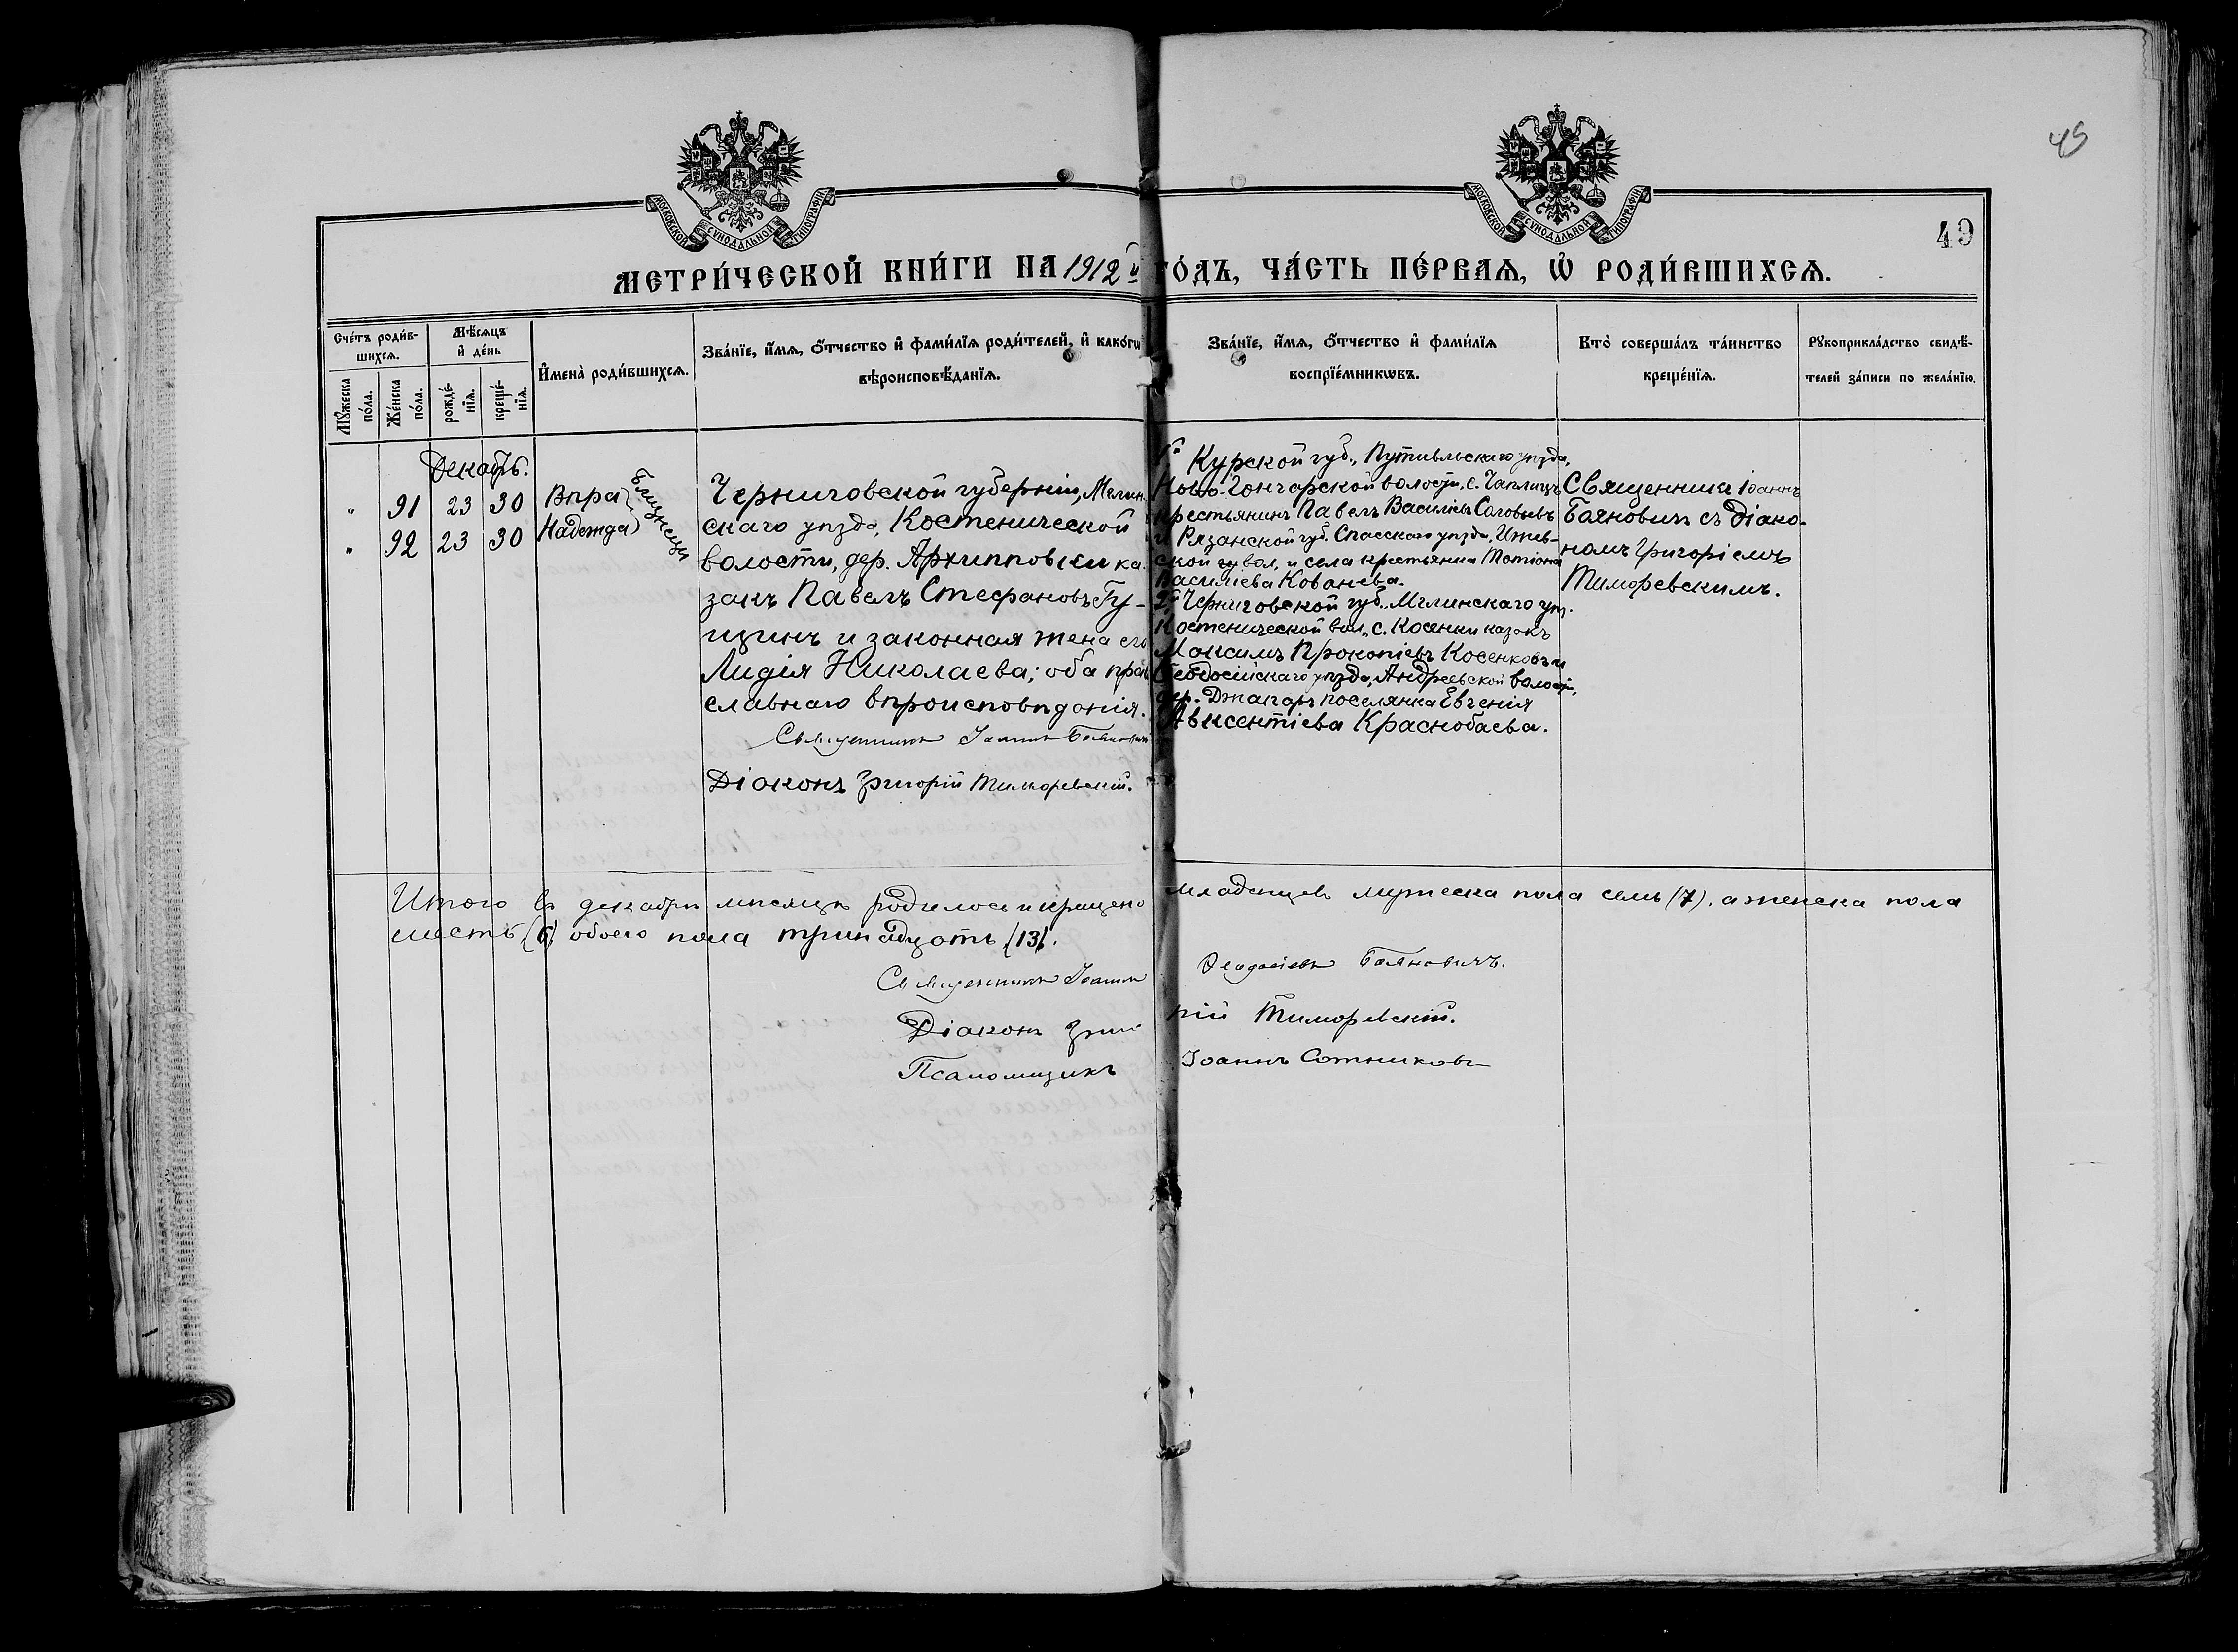 49
МОСКОВСКОЙ СѴНОДАЛЬНОЙ ТИПОГРАФІИ
МОСКОВСКОЙ СѴНОДАЛЬНОЙ ТИПОГРАФІИ
49
МЕТРИ́ЧЕСКОЙ КНИ́ГИ НА 1912й ГО́ДЪ, ЧА́СТЬ ПЕ́РВАѦ, Ѡ РОДИ́ВШИХСѦ.
Сче́тъ роди́в-
шихсѧ.
Мѣ́сѧцъ
и҆ де́нь
Мꙋ́жеска
по́ла.
Же́нска
по́ла.
рожде́-
нїѧ.
креще́-
нїѧ.
И҆мена̀ роди́вшихсѧ.
Зва́нїе, и҆́мѧ, ѻ҆́тчество и҆ фами́лїѧ роди́телей, и҆ како́гѡ
вѣроисповѣ́данїѧ.
Зва́нїе, и҆́мѧ, ѻ҆́тчество и҆ фами́лїѧ
воспрїе́мникѡвъ.
Кто̀ соверша́лъ та́инство
креще́нїѧ.
Рꙋкоприкла́дство свидѣ́-
телей за́писи по жела́нїю.
Декабрь.
" 91 23 30 Вѣра
" 92 23 30 Надежда
Близнецы
Черниговской губерніи, Мглин-
скаго уѣзда, Костенической
волости, дер. Архипповки ка-
закъ Павелъ Стефановъ Гу-
щинъ и законная жена его
Лидія Николаева; оба прав
славнаго вѣроисповѣданія.
Священникъ Іоаннъ Баяновичъ
Діаконъ Григорій Тиморевскій.
1й Курской губ., Путивльскаго уѣзда,
Ново-Гончарской волости, с. Чаплищъ
крестьянинъ Павелъ Василіевъ Соловьевъ
и Рязанской губ. Спасскаго уѣзда, Ижев-
ской вол, и села крестьянка Матіона
Василіева Ковонева.
2й Черниговской губ. Мглинскаго уѣз.
Костенической вол., с. Косенки казакъ
Максимъ Прокопіевъ Косенковъ и
Ѳеодосійскаго уѣзда, Андреевской волости,
дер. Джапаръ поселянка Евгенія
Авксентіева Краснобаева.
Священникъ Іоаннъ
Баяновичъ съ Діако-
номъ Григоріемъ
Тиморевскимъ.
Итого въ декабрѣ мѣсяцѣ родилось и крещено младенцевъ мужеска пола семь (7), а женска пола
шесть (6) обоего пола тринадцать (13).
Священникъ Іоаннъ Ѳеодосіевъ Баяновичъ.
Діаконъ Григорій Тиморевскій.
Псаломщикъ Іоаннъ Сотниковъ